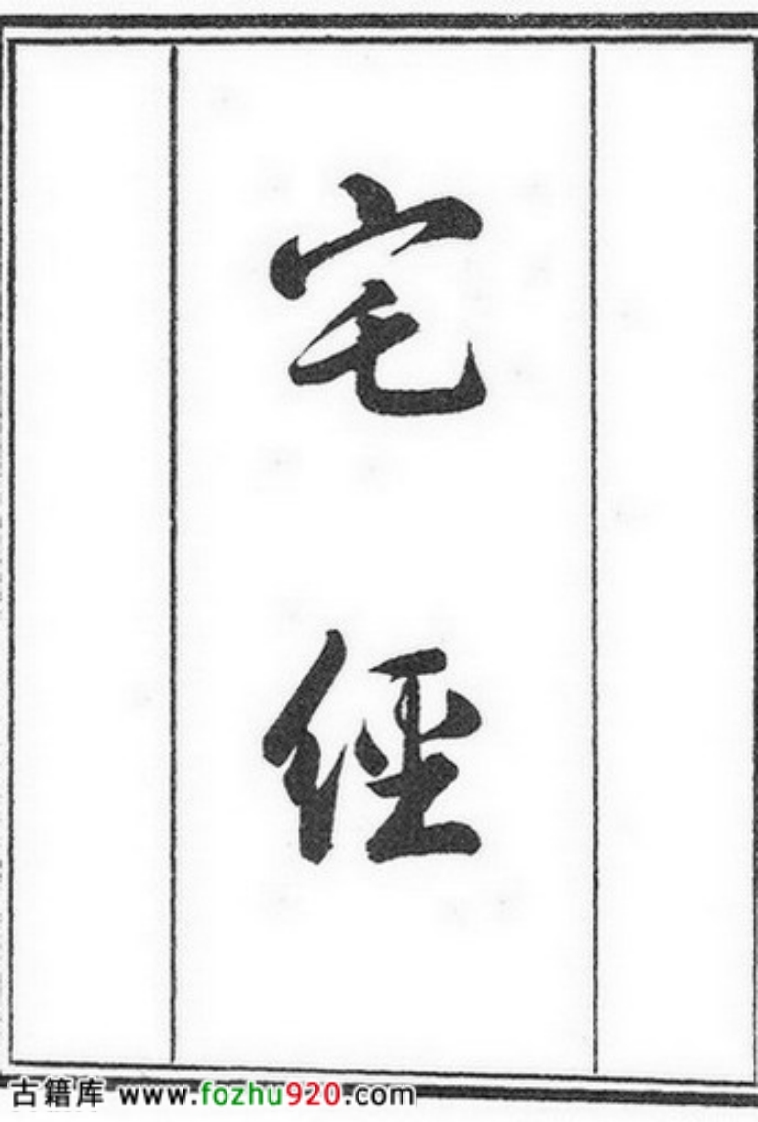 宅經
古籍库 www.fozhu920.com